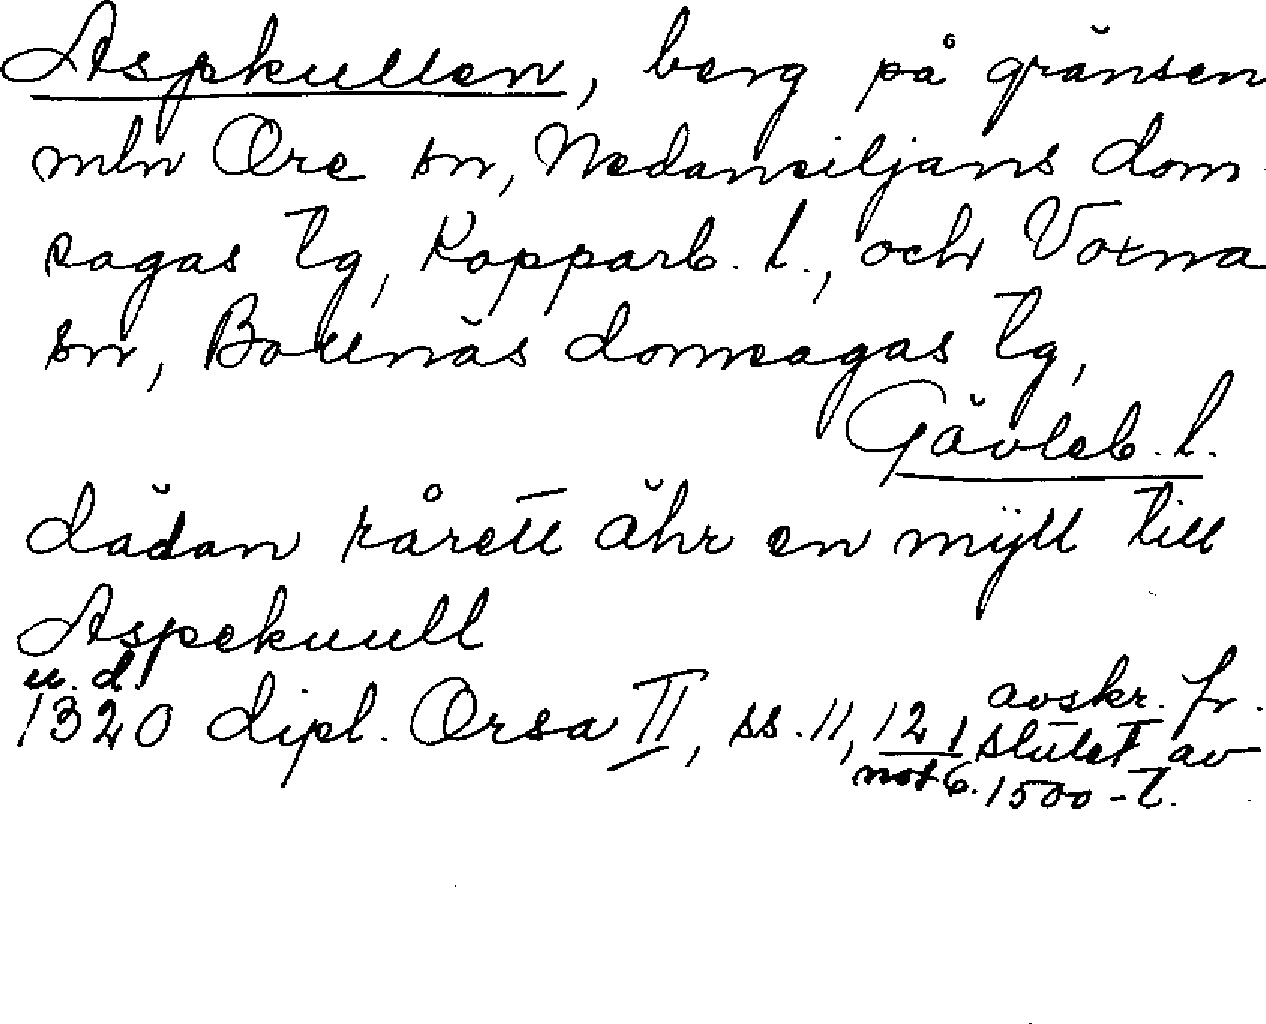 Aspkullen, berg på gränsen
mln Ore sn, Nedansiljans dom-
sagas tg, Kopparb. l., och Voxna
sn, Bollnäs domsagas tg,
Gävleb. l.
dädan rårett ähr en mÿll till
Aspekuull
u. d.
1320 dipl. Orsa II, ss. 11, 12 1 avskr. fr.
not 6. slutet av
1500-t.